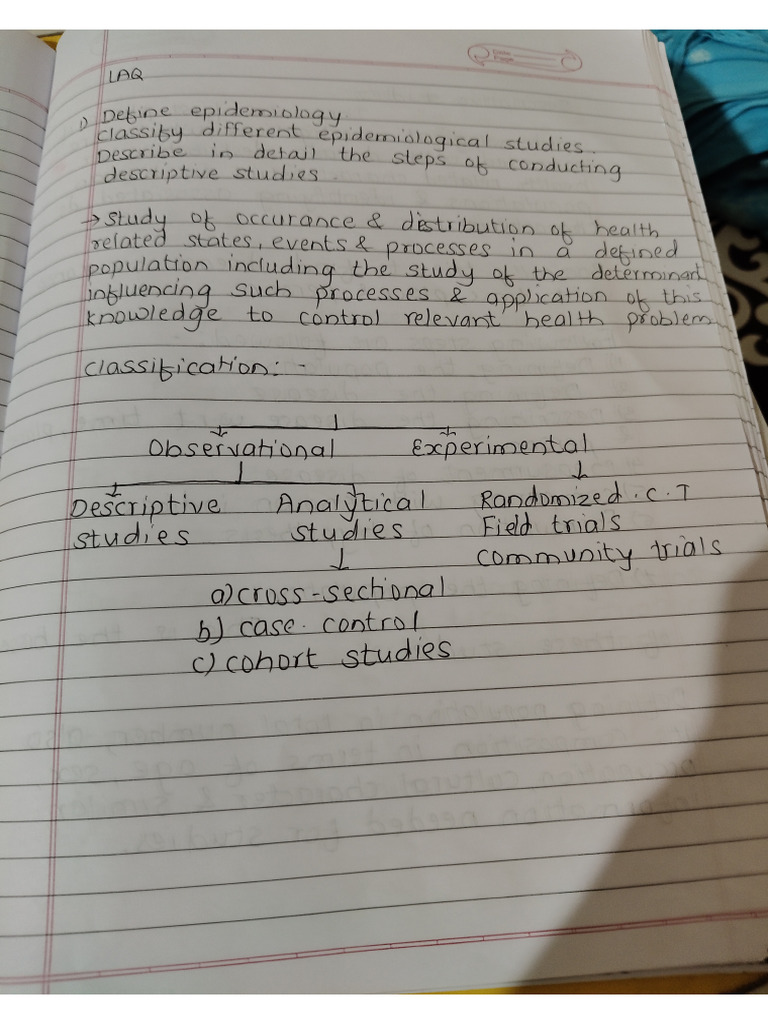 LAQ
1) Define epidemiology
Classify different epidemiological studies.
Describe in detail the steps of conducting
descriptive studies.
→ Study of occurance & distribution of health
related states, events & processes in a defined
population including the study of the determinant
influencing such processes & application of this
knowledge to control relevant health problem
Classification: -
Observational Experimental
Descriptive Analytical Randomized. C. T
studies studies Field trials
community trials
a) cross-sectional
b) case. control
c) cohort studies